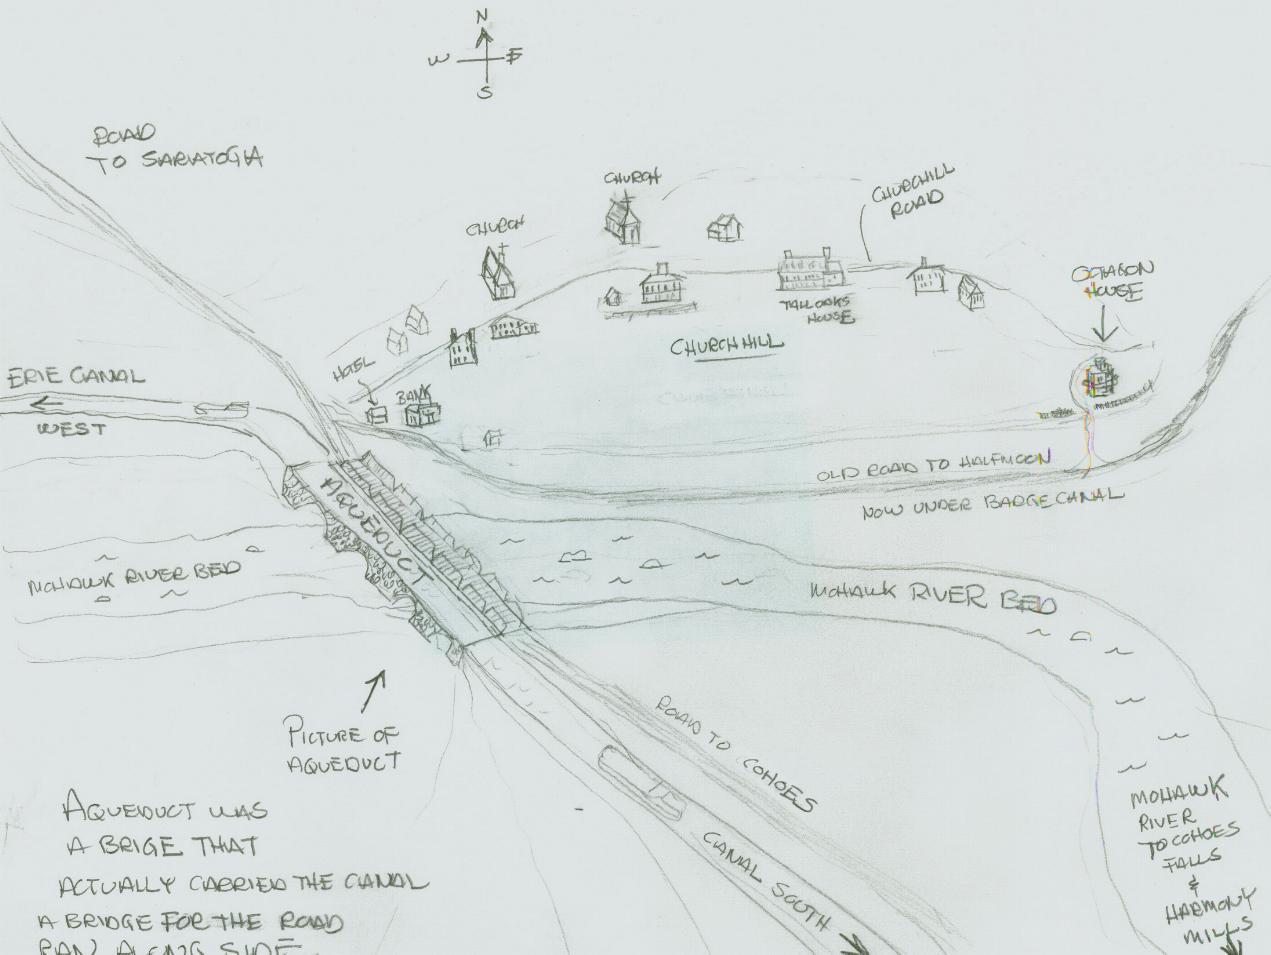 N
W E
S
ROAD
TO SARATOGA
CHURCH
CHURCH
CHURCHILL
ROAD
OCTAGON
HOUSE
TALL OAKS
HOUSE
CHURCH HILL
HOTEL
BANK
ERIE CANAL
WEST
OLD ROAD TO HALFMOON
NOW UNDER BARGE CANAL
AQUEDUCT
MOHAWK RIVER BED
MOHAWK RIVER BED
PICTURE OF
AQUEDUCT
ROAD TO COHOES
CANAL SOUTH
MOHAWK
RIVER
TO COHOES
FALLS
&
HARMONY
MILLS
AQUEDUCT WAS
A BRIGE THAT
ACTUALLY CARRIED THE CANAL
A BRIDGE FOR THE ROAD
RAN ALONG SIDE